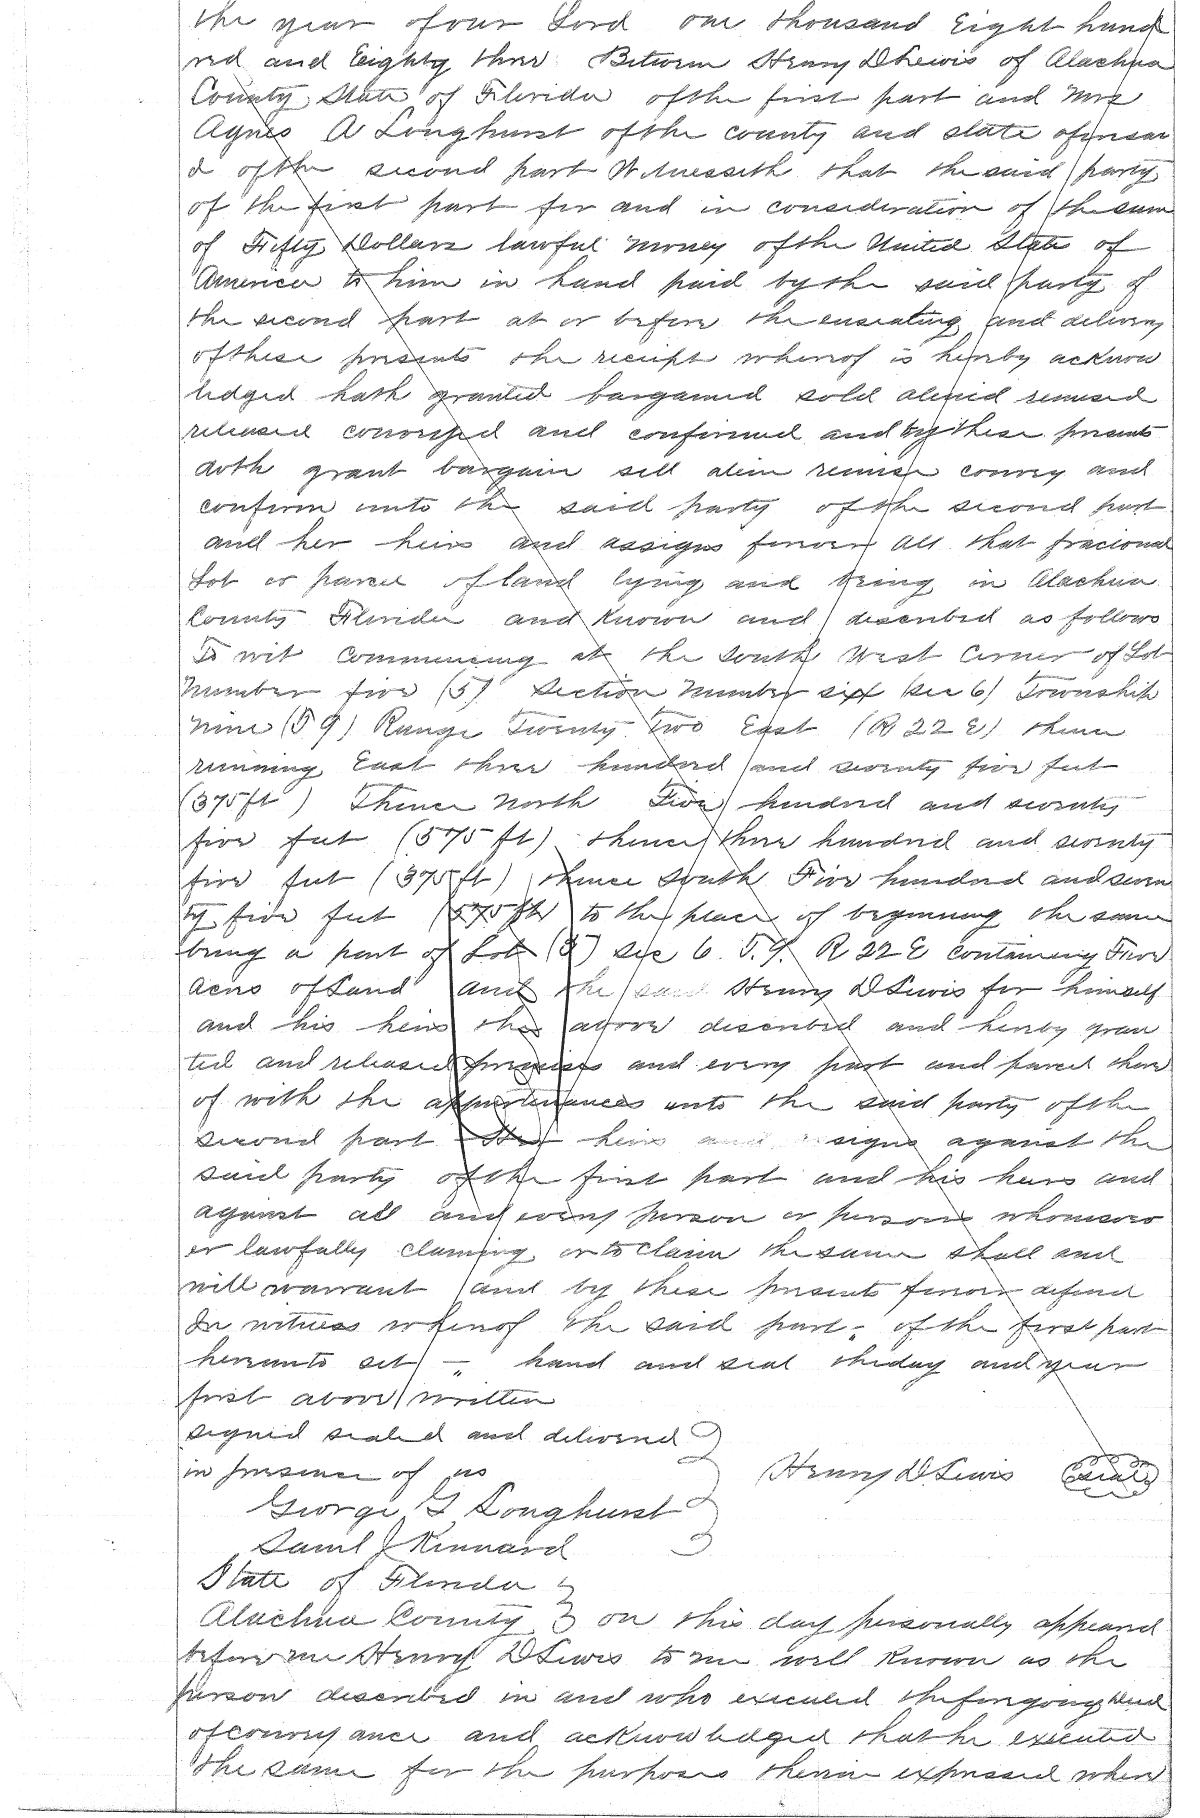 the year of our Lord one thousand Eight hund
red and Eighty three Between Henry D Lewis of Alachua
County State of Florida of the first part and Mrs
Agnes A Longhurst of the county and state aforesai
d of the second part Witnesseth that the said party
of the first part for and in consideration of the sum
of Fifty Dollars lawful money of the United State of
America to him in hand paid by the said party of
the second part at or before the enseating and delivery
of these presents the receipt whereof is hereby acknow
ledged hath granted bargained sold aliened remised
released conveyed and confirmed and by these presents
doth grant bargain sell alien remise convey and
confirm unto the said party of the second part
and her heirs and assigns forever All that fracional
Lot or parcel of land lying and being in Alachua
County Florida and Known and described as follows
To wit Commencing at the South West Corner of Lot
Number five (5) Section Number six (sec 6) Township
nine (T 9) Range Twenty Two East (R 22 E) thence
running East three hundred and seventy five feet
(375 ft) Thence North Five hundred and seventy
five feet (575 ft) thence three hundred and seventy
five feet (375 ft) thence South Five hundred and seven
ty five feet (575 ft) to the place of beginning the same
being a part of Lot (5) sec 6. T. 9. R 22 E containing Five
acres of Land and the said Henry D Lewis for himself
and his heirs the above described and hereby gran
ted and released premises and every part and parcel there
of with the appurtenances unto the said party of the
second part Her heirs and assigns against the
said party of the first part and his heirs and
against all and every person or persons whomsoev
er lawfully claming or to Claim the same shall and
will warrant and by these presents forever defend
In witness whereof the said part of the first part
hereunto set hand and seal the day and year
first above written
signed sealed and delivered
in presence of us
Henry D Lewis (seal)
George G Longhurst
Saml J Kennard
State of Florida
Alachua County } on this day personally appeared
before me Henry D Lewis to me well Known as the
person described in and who executed the forgoing Deed
of conveyance and acKnowledged that he executed
the same for the purposes therein expressed where